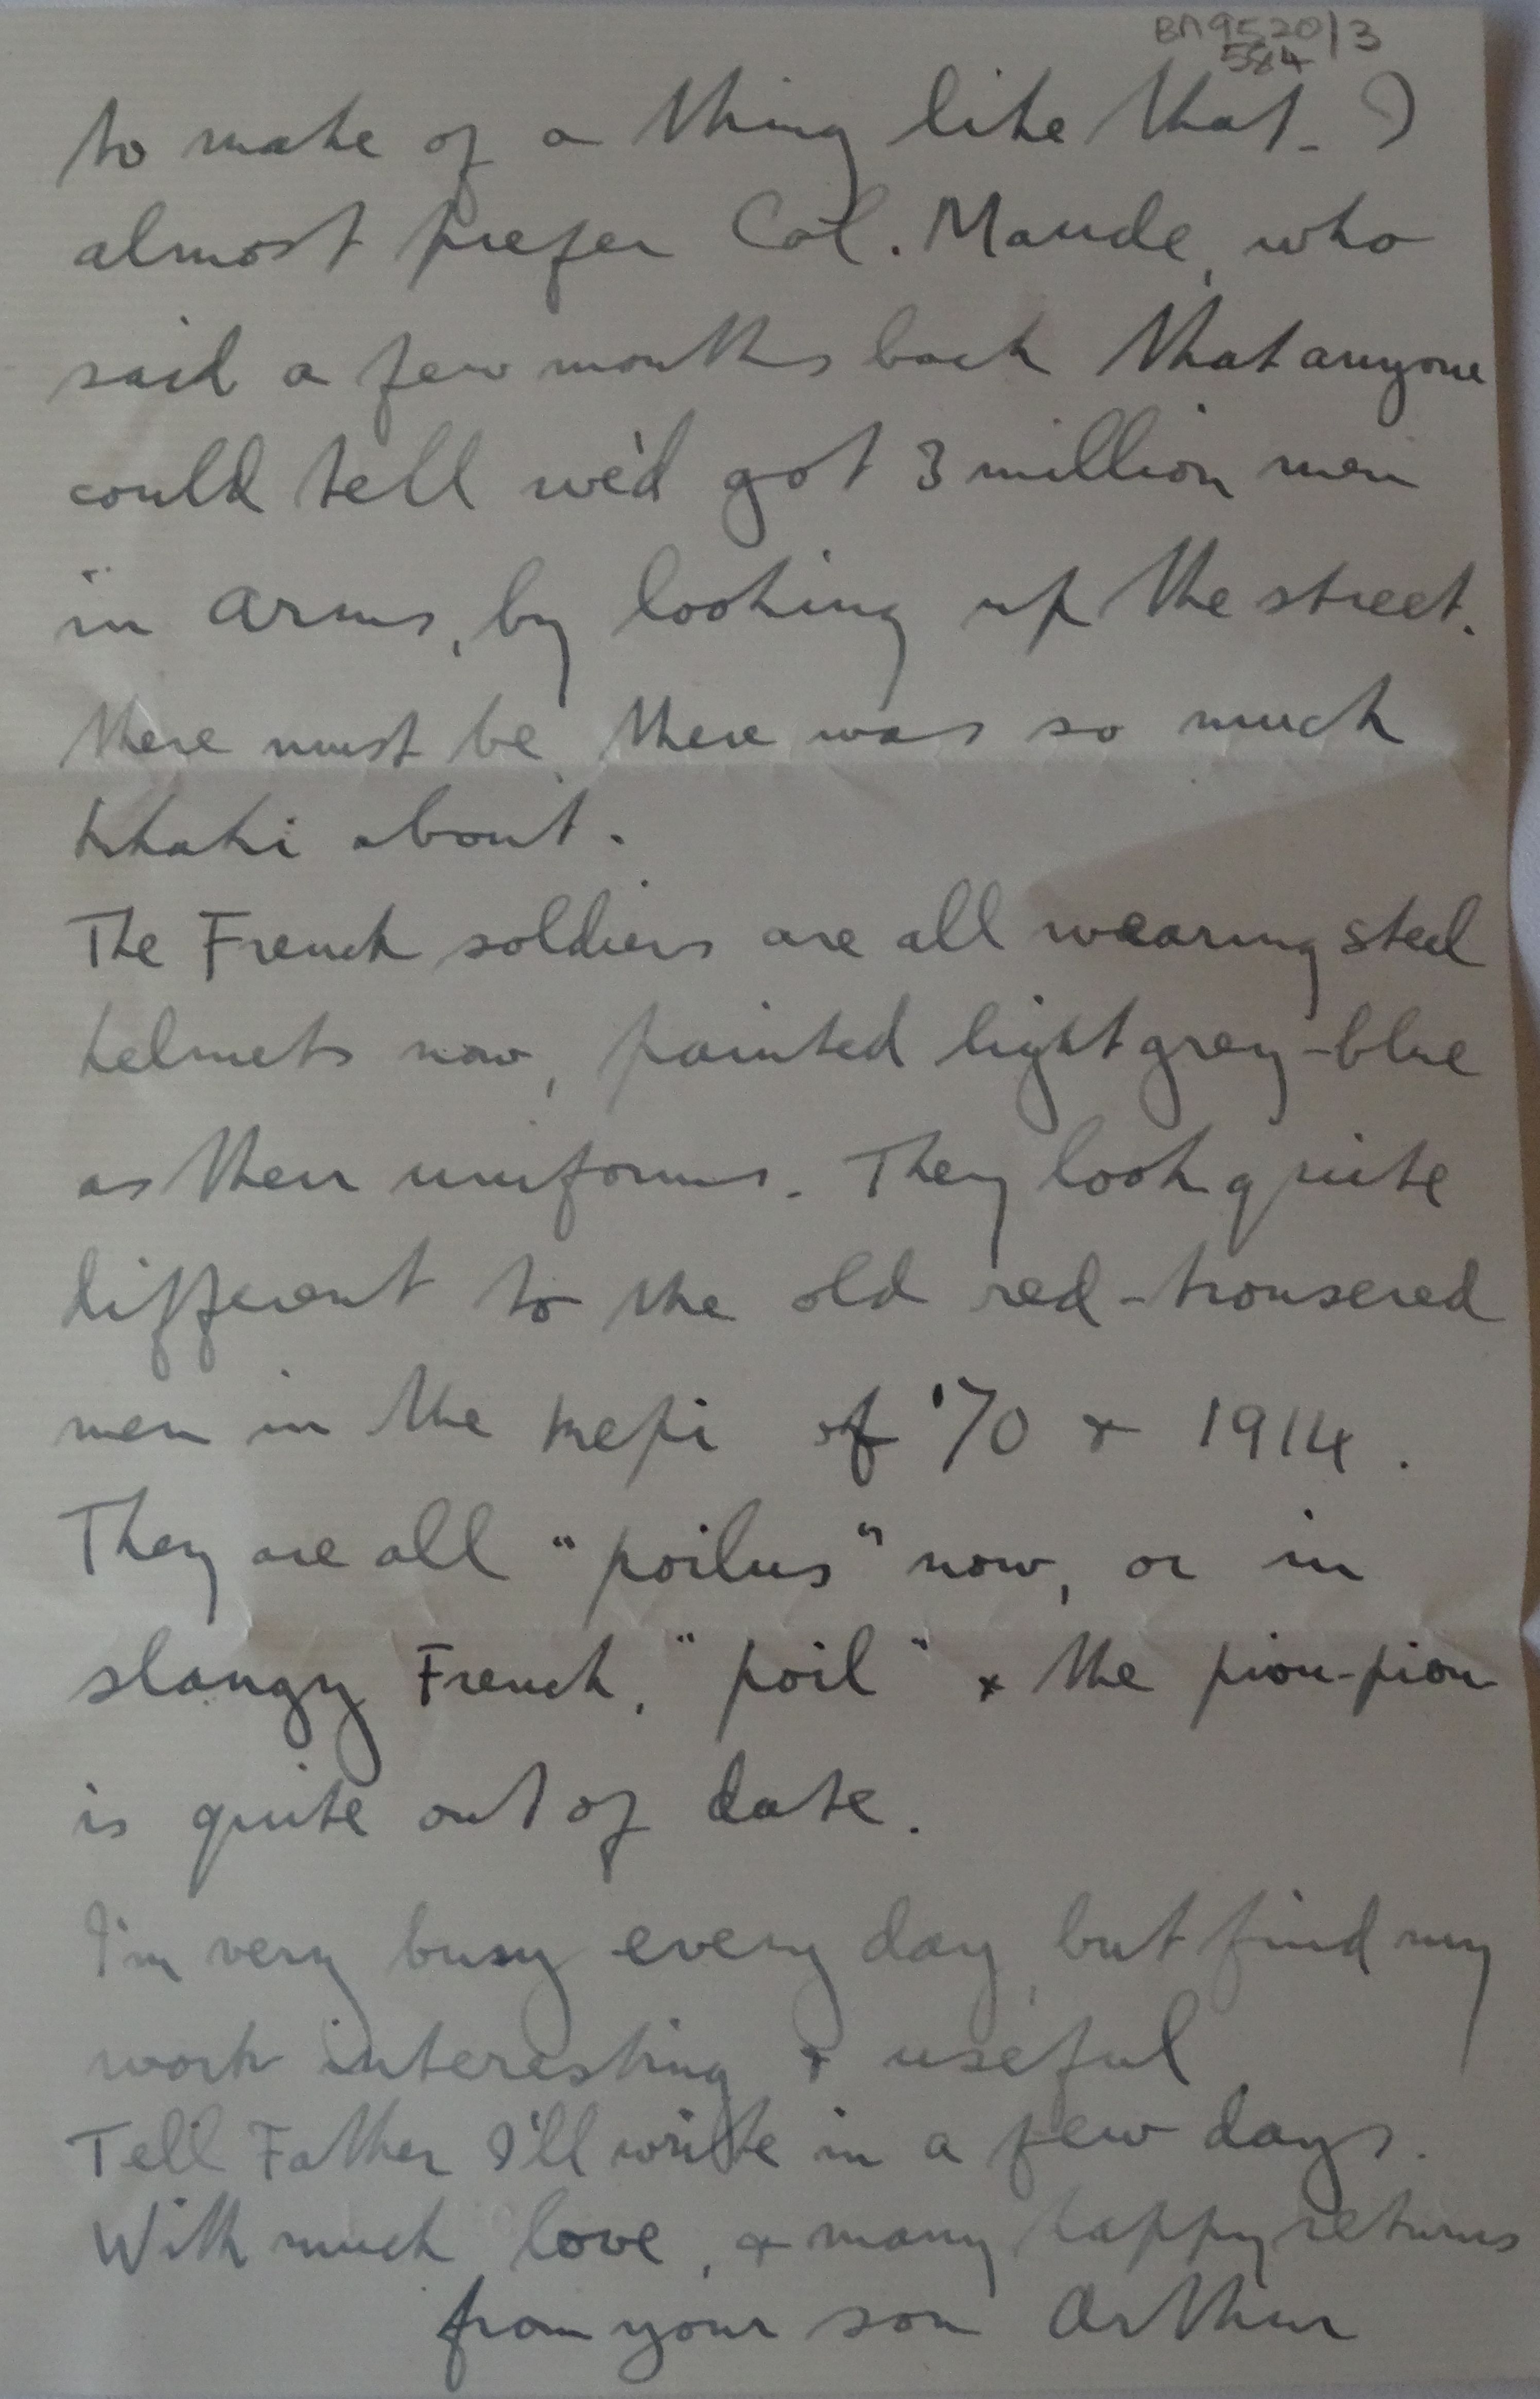 BA9520/3
584
to make of a thing like that. I
almost prefer Col. Maude, who
said a few months back that anyone
could tell we'd got 3 million men
in arms, by looking up the street.
there must be, there was so much
khaki about.
The French soldiers are all wearing steel
helmets now, painted light grey-blue
as their uniforms. They look quite
different to the old red-trousered
men in the kepi of '70 & 1914.
They are all "poilus" now, or in
slangy French, "poil" & the piou-piou
is quite out of date.
I'm very busy every day, but find my
work interesting & useful
Tell Father I'll write in a few days.
With much love, & many happy returns
from your son Arthur